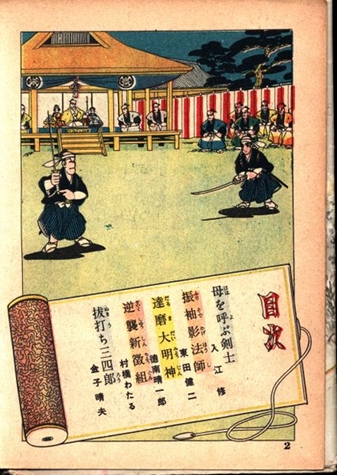 目次
母を呼ぶ剣士
入江修
振袖影法師
東田健二
達磨大明神
徳南晴一郎
逆襲新徴組
村橋わたる
抜打ち三四郎
金子晴夫
2